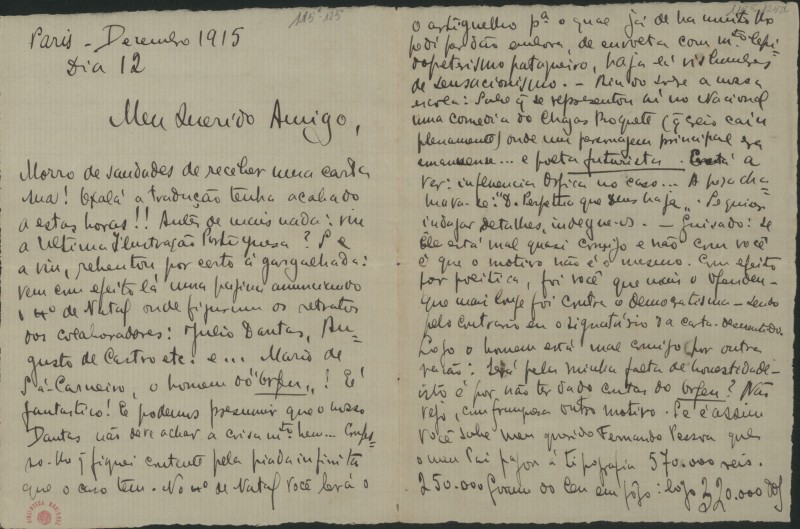 115⁵-125
Paris - Dezembro 1915
Dia 12
Meu Querido Amigo,
Morro de saudades de receber uma carta
sua! Oxalá a tradução tenha acabado
a estas horas!! Antes de mais nada: viu
a Ultima Ilustração Portuguesa? Se
a viu, rebentou por certo à gargalhada:
vem em efeito lá uma pagina anunciando
o nº de Natal onde figuram os retratos
dos colaboradores: Julio Dantas, Au-
gusto de Castro etc. e... Mario de
Sá-Carneiro, o homem do "Orfeu"! É
fantastico! E podemos presumir que o nosso
Dantas não deve achar a coisa mtº bem... Confes-
so-lho q fiquei contente pela piada infinita
que o caso tem. No nº de Natal você lerá o
BIBLIOTECA NACIONAL
o artiguelho pª o qual já de ha muito lho
pedi perdão embora, de envolta com mtº lepi-
dopterismo pataqueiro, haja lá vislumbres
de sensacionismo. - Ainda sobre a nossa
escola: Sabe q se representou aí no Nacional
uma comedia do Chagas Roquete (q creio caiu
plenamente) onde um personagem principal era
amanuense... e poeta futurista. a
ver: influencia Orfica no caso... A peça cha-
mava-se: "D. Perpetua que Deus haja". Se quiser
indagar detalhes, indague-os. - Guisado: se
ele está mal quasi comigo e não com você
é que o motivo não é o mesmo. Com efeito
por politica, foi você que mais o ofenden-
que mais longe foi contra o democratismo - sendo
pelo contrario eu o signatário da carta-desmentido.
Logo o homem está mal comigo por outra
razão: Será pela minha falta de honestidade -
isto é por não ter dado contas do Orfeu? Não
vejo, com franqueza outro motivo. Se é assim
você sabe meu querido Fernando Pessoa que
o meu Pai pagou á tipografia 570.000 reis.
250.000 foram do Ceu em fogo: logo 320.000 do